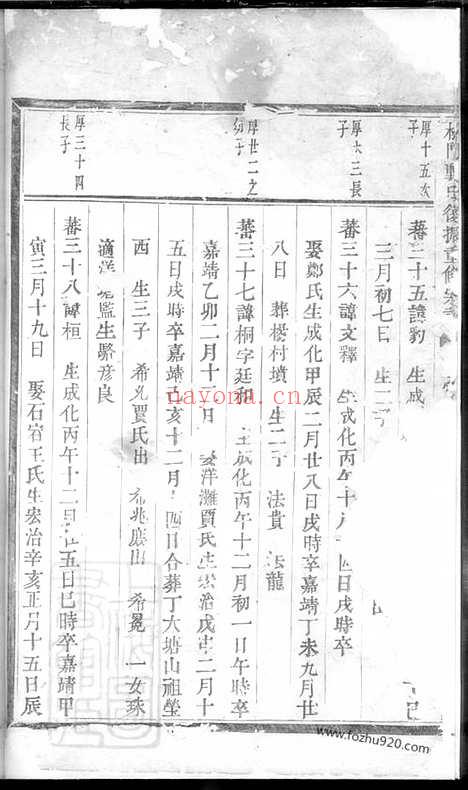 厚十五次
子
厚六三長
子
厚廿二之
幼子
厚三十四
長子
蕃三十五諱豹 生成
三月初七日 生二子
蕃三十六諱文釋 生成化丙午十月 四日戌時卒
娶鄭氏生成化甲辰二月廿八日戌時卒嘉靖丁未九月廿
八日 葬楊村墳 生二子 法貴 法龍
蕃三十七諱桐字廷和 生成化丙午十二月初一日午時卒
嘉靖乙卯二月十二日 娶洋灘賈氏生宏治戊申二月十
五日戌時卒嘉靖 亥十二月 四日合葬丁大塘山祖瑩
西 生三子 希光賈氏出 希兆庶出 希冕 一女珠
適洋 監生駱彥良
蕃三十八諱桓 生成化丙午十二月 五日巳時卒嘉靖甲
寅三月十九日 娶石宕王氏生宏治辛亥正月十五日辰
navona.cn
www.fozhu920.com